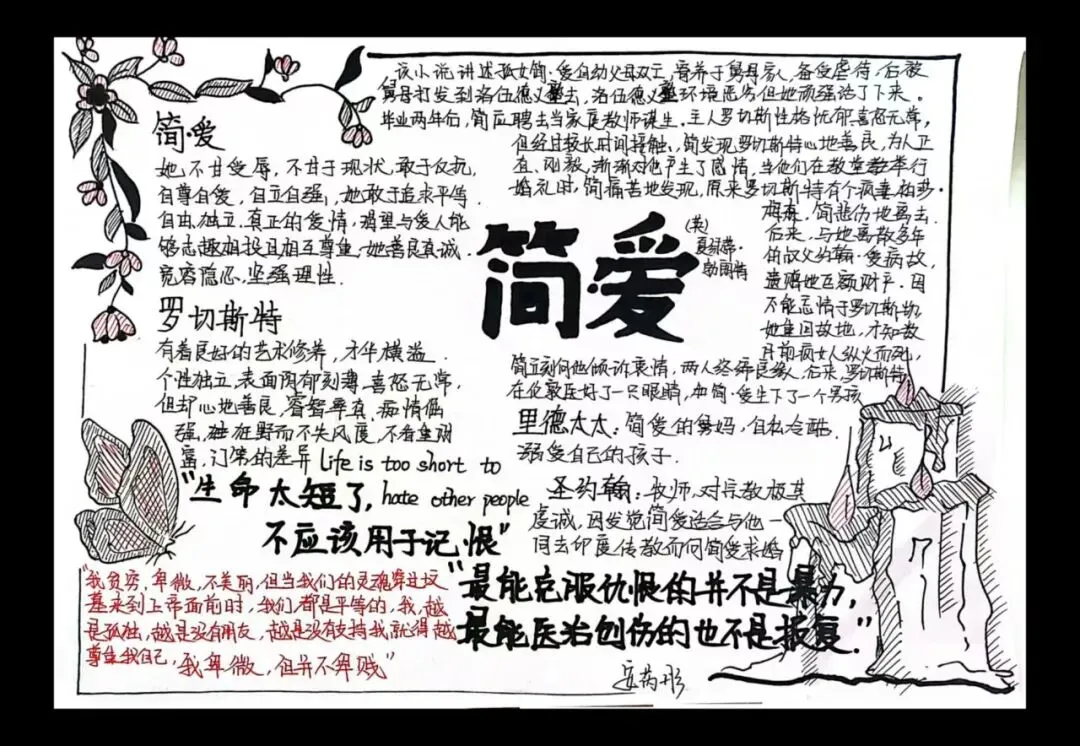 该小说讲述孤女简·爱自幼父母双亡,寄养于舅母家,备受虐待,后被
舅母打发到洛伍德义塾去,洛伍德义塾环境恶劣但她顽强活了下来。
毕业两年后,简应聘去当家庭教师谋生。主人罗切斯特性格忧郁喜怒无常,
但经过较长时间接触,简发现罗切斯特心地善良,为人正
直、刚毅,渐渐对他产生了感情,当他们在教堂举行
婚礼时,简痛苦地发现,原来罗切斯特有个疯妻伯莎·
梅森,简悲伤地离去.
后来,与她离散多年
的叔父约翰·爱病故,
遗赠她巨额财产。因
不能忘情于罗切斯特
她重回故地,才知数
月前疯女人纵火而死,
简立刻向他倾诉衷情,两人终缔良缘,后来,罗切斯特
在伦敦医好了一只眼睛,和简·爱生下了一个男孩
简爱
她不甘受辱,不甘于现状,敢于反抗,
自尊自爱,自立自强,她敢于追求平等
自由独立,真正的爱情,渴望与爱人能
够志趣相投且相互尊重,她善良真诚.
宽容隐忍,坚强理性.
简爱
(英)
夏绿蒂·
勃朗特
罗切斯特
有着良好的艺术修养,才华横溢.
个性独立,表面阴郁刻薄,喜怒无常,
但却心地善良,睿智率真,痴情倔
强,狂野而不失风度,不看重财
富,门第的差异 Life is too short to
hate other people
"生命太短了,
不应该用于记恨"
里德太太:简爱的舅妈,自私冷酷.
溺爱自己的孩子.
圣约翰:牧师,对宗教极其
虔诚,因发觉简爱适合与他一
同去印度传教而向简爱求婚
"我贫穷,卑微,不美丽,但当我们的灵魂穿过坟
墓来到上帝面前时,我们都是平等的,我,越
是孤独,越是没有朋友,越是没有支持,我就得越
尊重我自己,我卑微,但并不卑贱"
"最能克服仇恨的并不是暴力,
最能医治创伤的也不是报复."